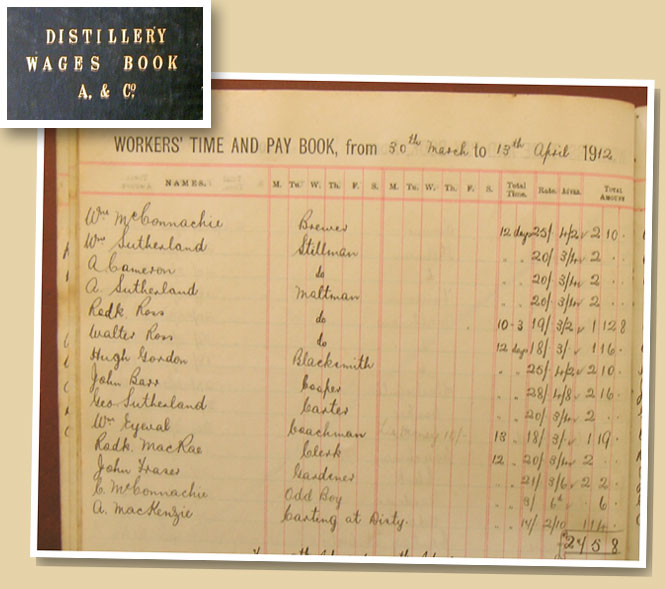 DISTILLERY
WAGES BOOK
A. & Co.
WORKERS' TIME AND PAY BOOK, from 30th March to 13th April 1912
NAMES. M. Tu. W. Th. F. S. M. Tu. W. Th. F. S. Total Time. Rate. Total Amount
Wm McConnachie Brewer 12 days 25/ 4/2 2 10 .
Wm Sutherland Stillman " " 20/ 3/4 2 . .
A Cameron do " " 20/ 3/4 2 . .
A. Sutherland Maltman " " 20/ 3/4 2 . .
Redk Ross do 10-3 19/ 3/2 1 12 8
Walter Ross do 12 days 18/ 3/- 1 16 .
Hugh Gordon Blacksmith " " 25/ 4/2 2 10 .
John Barr Cooper " " 28/ 4/8 2 16 .
Geo Sutherland Carter " " 20/ 3/4 2 . .
Wm Coachman 13 " 18/ 3/- 1 19 .
Redk. MacRae Clerk 12 " 20/ 3/4 2 . .
John Fraser Gardener " " 21/ 3/6 2 2 .
C. McConnachie Odd Boy " " 3/ 6d . 6 .
A. MacKenzie Carting at Disty. " "
£ 24 5 8